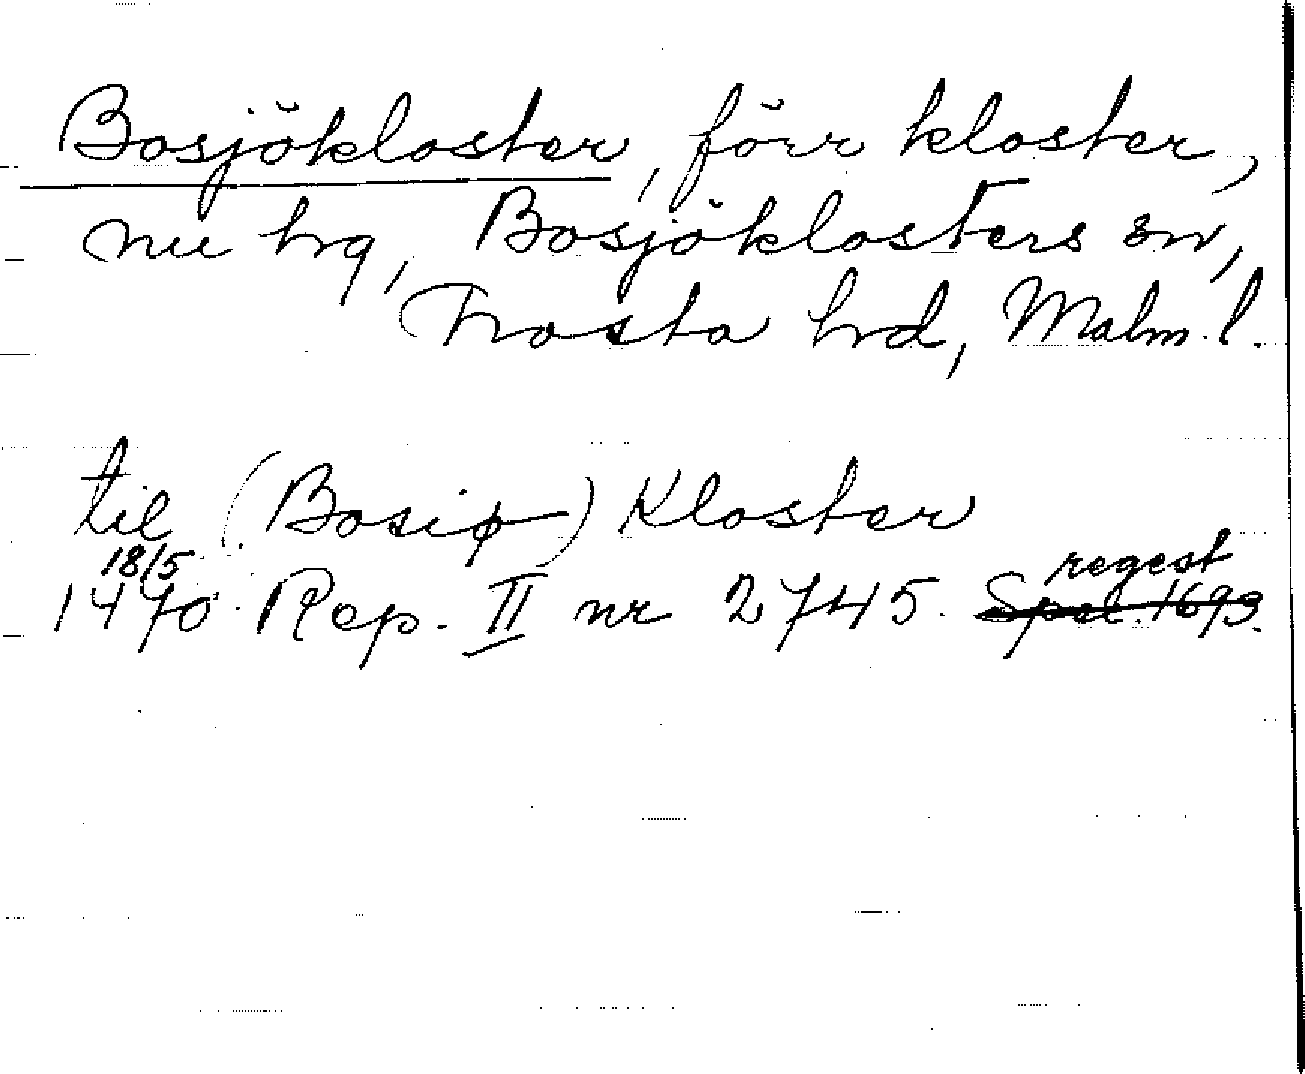 Bosjökloster, förr kloster,
nu hrg, Bosjöklosters sn,
Frosta hrd, Malm. l.
til (Bosiø) Kloster
18/5 regest
1470 Rep. II nr 2745. Spel. 1693.